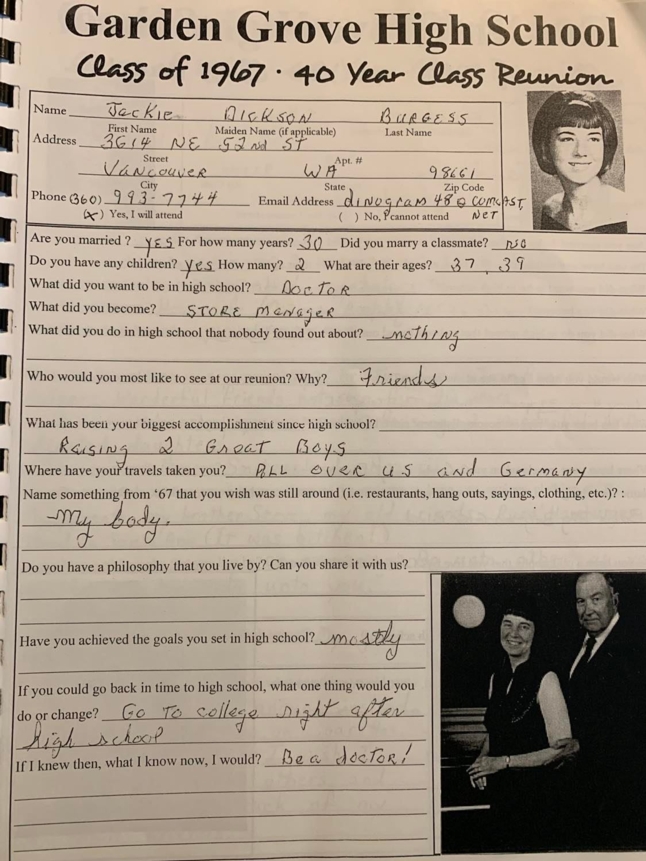 Garden Grove High School
Class of 1967 · 40 Year Class Reunion
Name Jackie DICKSON BURGESS
First Name Maiden Name (if applicable) Last Name
Address 3614 NE 52nd ST
Street Apt. #
VANCOUVER WA 98661
City State Zip Code
Phone (360) 993-7744 Email Address dinogram48@comcast,
(x) Yes, I will attend ( ) No, I cannot attend NET
Are you married ? yES For how many years? 30 Did you marry a classmate? no
Do you have any children? yes How many? 2 What are their ages? 37, 39
What did you want to be in high school? DOCTOR
What did you become? STORE Manager
What did you do in high school that nobody found out about? nothing
Who would you most like to see at our reunion? Why? Friends
What has been your biggest accomplishment since high school?
Raising 2 Great Boys
Where have your travels taken you? ALL over US and Germany
Name something from '67 that you wish was still around (i.e. restaurants, hang outs, sayings, clothing, etc.)? :
My body.
Do you have a philosophy that you live by? Can you share it with us?
Have you achieved the goals you set in high school? mostly
If you could go back in time to high school, what one thing would you
do or change? Go To college right after
high school
If I knew then, what I know now, I would? Be a doctor!